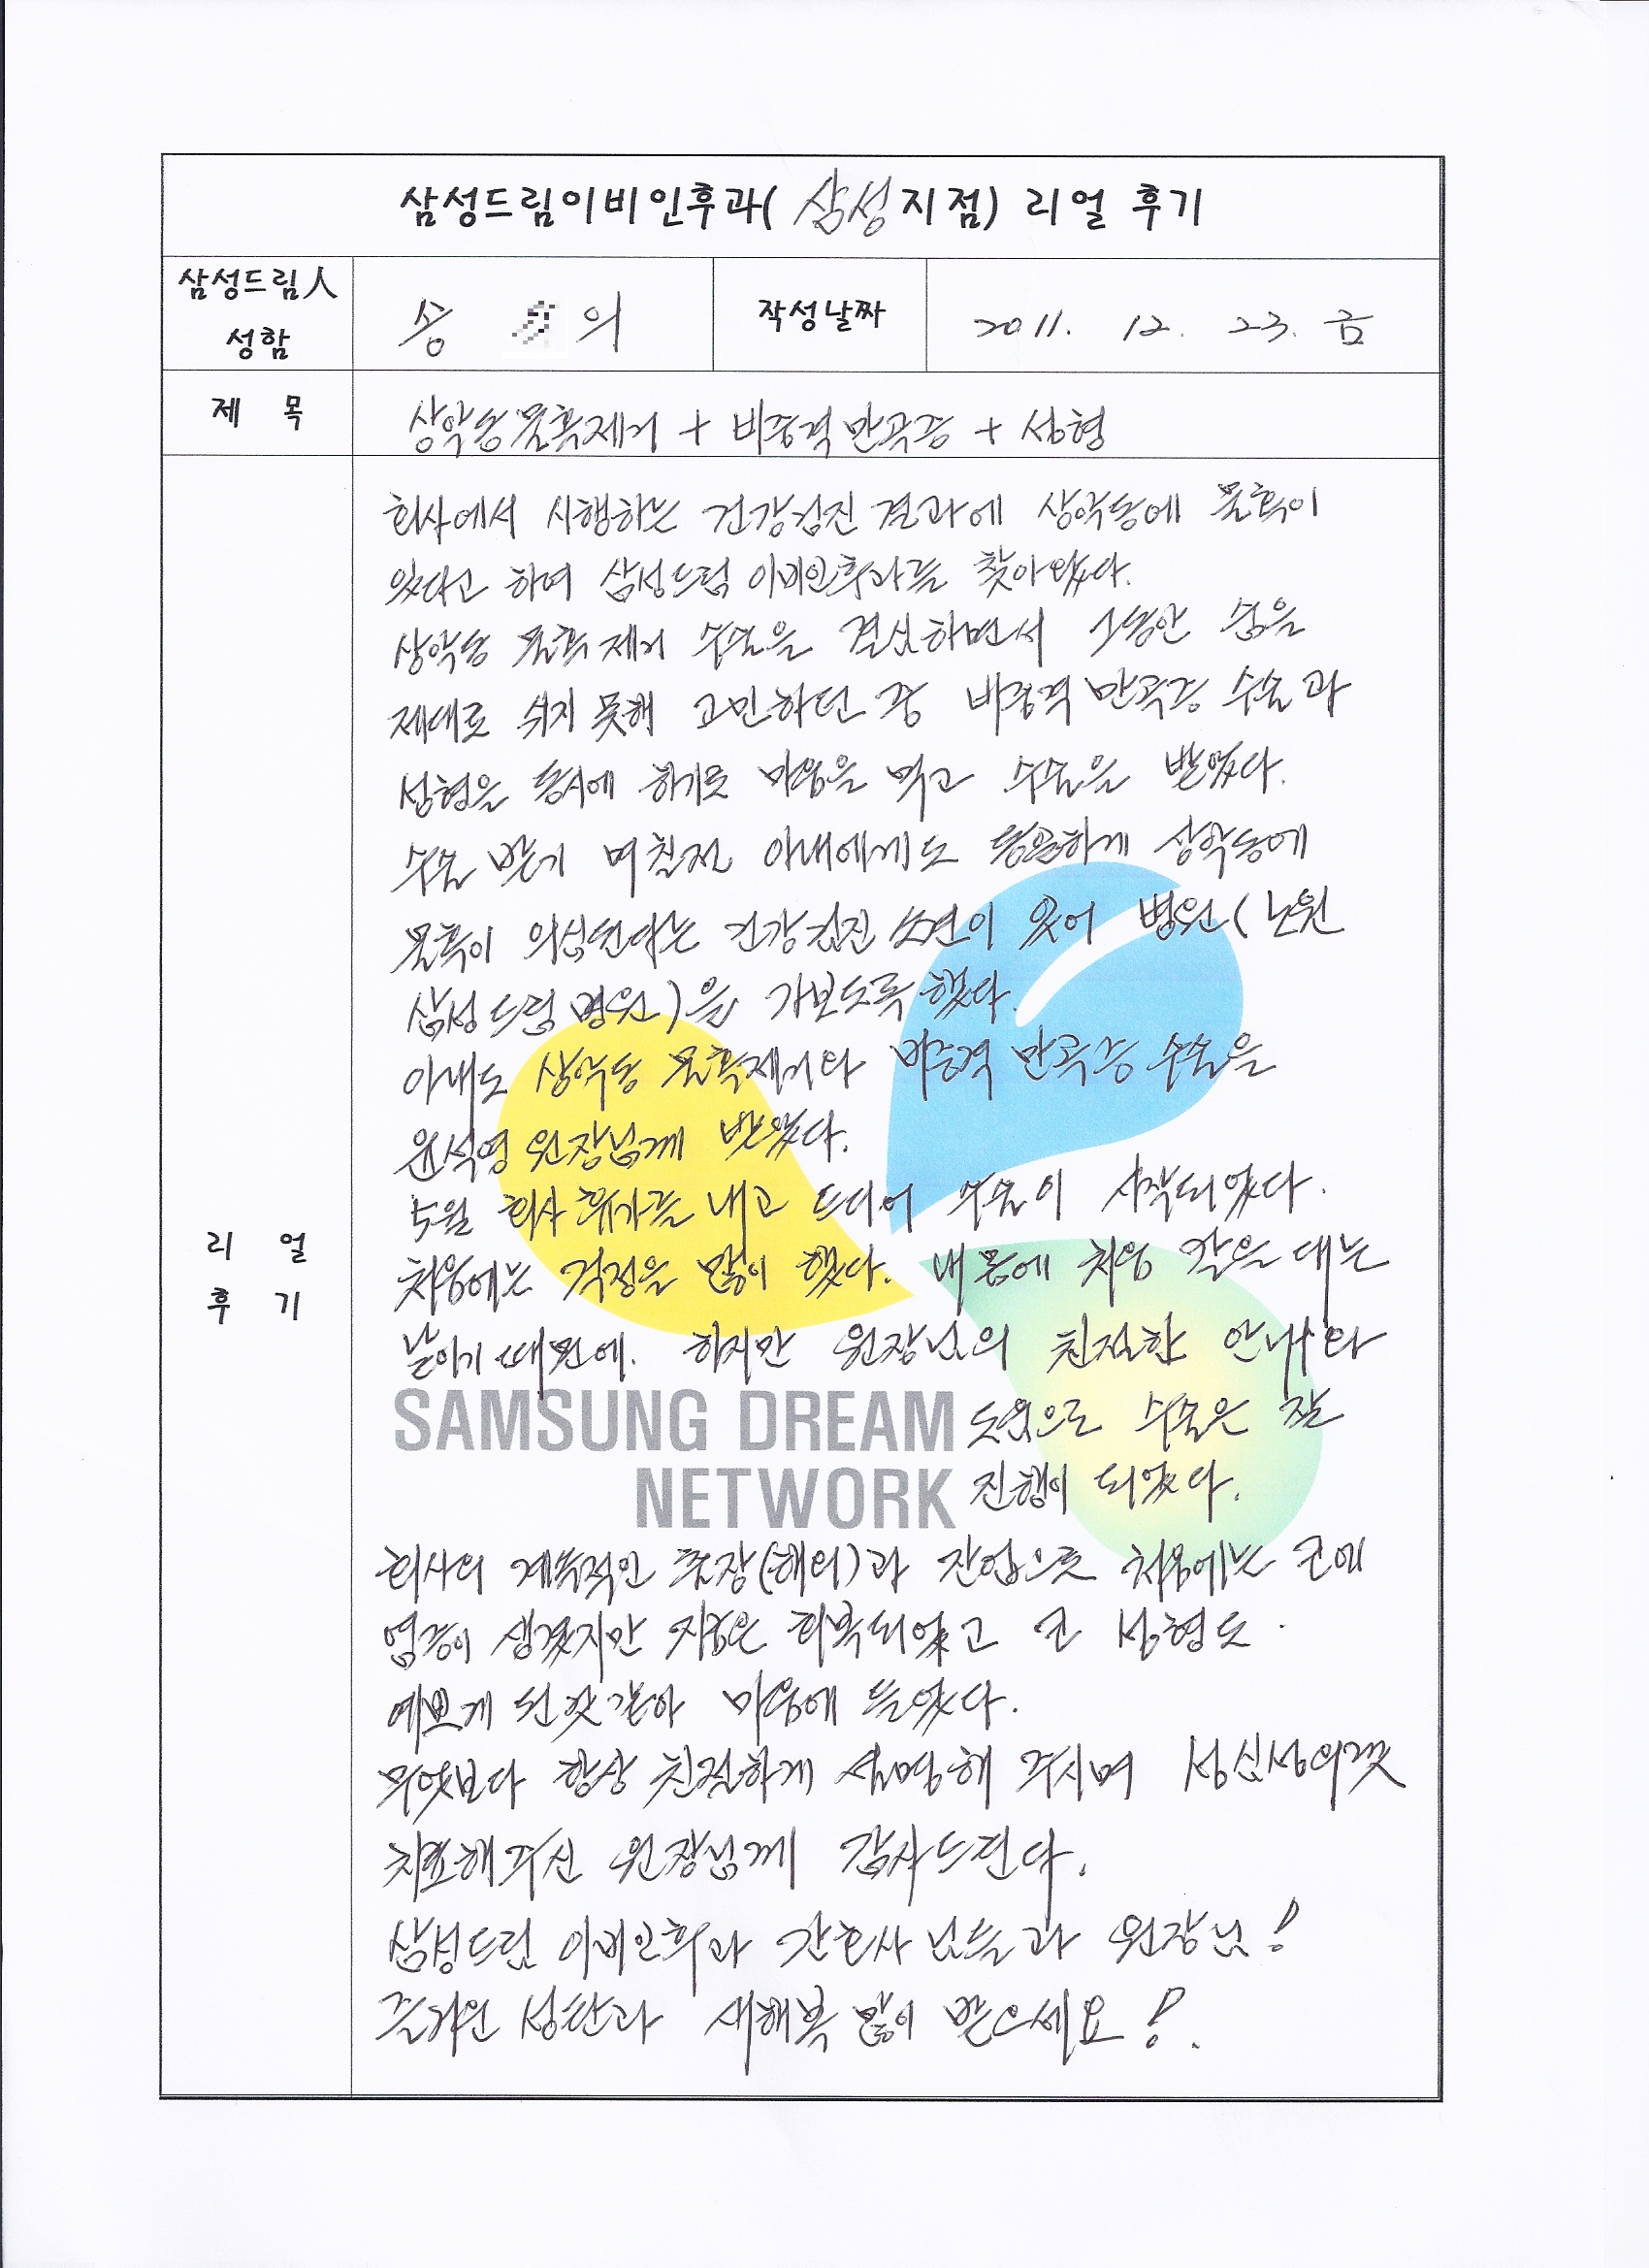 삼성드림이비인후과( 삼성지점) 리얼 후기
삼성드림人
성함
송 의
작성날짜
2011. 12. 23. 금
제 목
상악동물혹제거 + 비중격만곡증 + 성형
회사에서 시행하는 건강검진 결과에 상악동에 물혹이
있다고 하여 삼성드림 이비인후과를 찾아왔다.
상악동 물혹 제거 수술을 결심하면서 그동안 숨을
제대로 쉬지 못해 고민하던 중 비중격 만곡증 수술과
성형을 동시에 하기로 마음을 먹고 수술을 받았다.
수술 받기 며칠전 아내에게도 동일하게 상악동에
물혹이 의심된다는 건강검진 소견이 있어 병원(노원
삼성드림병원)을 가보도록 했다.
아내도 상악동 물혹제거와 비중격 만곡증 수술을
윤석영 원장님께 받았다.
5월 회사 휴가를 내고 드디어 수술이 시작되었다.
처음에는 걱정을 많이 했다. 내 몸에 처음 칼을 대는
날이기 때문에. 하지만 원장님의 친절한 안내와
도움으로 수술은 잘
진행이 되었다.
SAMSUNG DREAM
NETWORK
회사의 계속적인 출장(해외)과 잔업으로 처음에는 코에
염증이 생겼지만 지금은 회복되었고 코 성형도
예쁘게 된것같아 마음에 들었다.
무엇보다 항상 친절하게 설명해 주시며 성심성의껏
치료해주신 원장님께 감사드린다.
삼성드림 이비인후과 간호사님들과 원장님!
즐거운 성탄과 새해복 많이 받으세요!.
리 얼
후 기